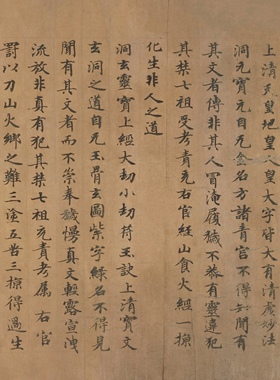 上清瓊皇地皇大字皆大有清虛妙法
洞元寶元自元金名方諸青宮不得知聞有
其文者傳非其人冒淹履穢不恭有靈違犯
其禁七祖受考責充右官經山食火經一掠
化生非人之道
洞玄靈寶上經大劫小劫符玉訣上清寶文
玄洞之道自无玉骨玄圖紫字綠名不得見
聞有其文者而不崇奉穢慢真文輕露宣洩
流放非真有犯其禁七祖充責考屬右官
罰以刀山火鄉之難三塗五苦三掠得過生